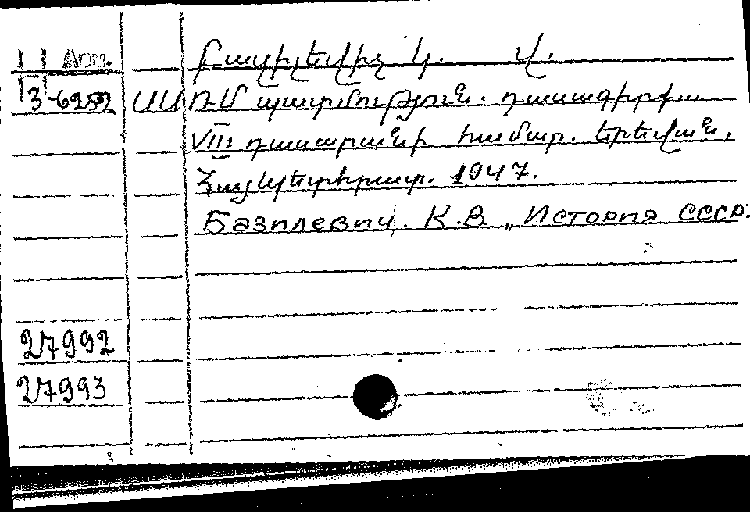 Арт. Բազիլեվիչ Կ. Վ.
3-6282 ՍՍՌՄ պատմություն. դասագիրք
VIII դասարանի համար. Երեվան,
Հայպետհրատ. 1947.
Базилевич. К.В. „История СССР.
27992
27993